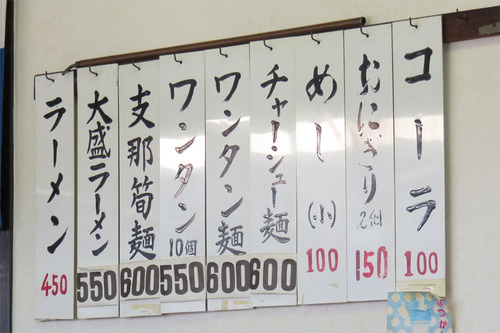 ラーメン
450
大盛ラーメン
550
支那筍麺
600
ワンタン
10個
550
ワンタン麺
600
チャーシュー麺
600
めし(小)
100
おにぎり
2個
150
コーラ
100